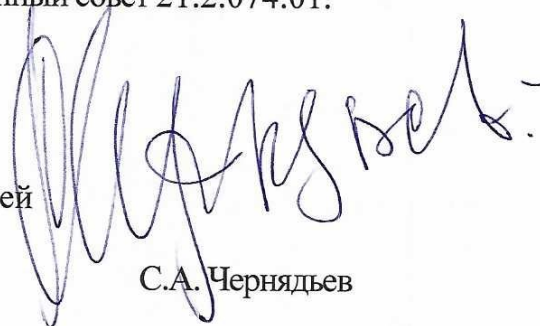 нный совет 21.2.074.01.
ей
С.А. Чернядьев